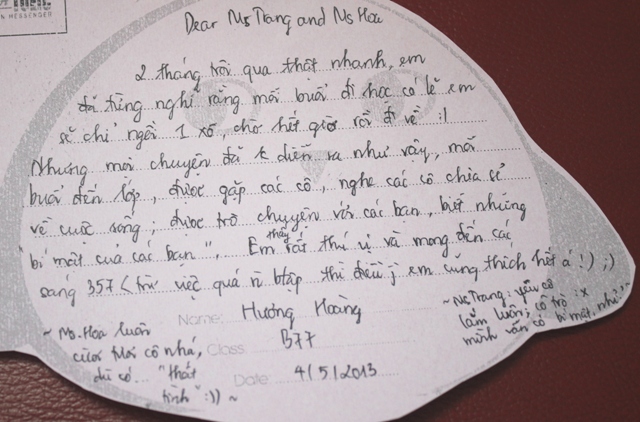 N MESSENGER
Dear Ms Trang and Ms Hoa
2 tháng trôi qua thật nhanh, em
đã từng nghĩ rằng mỗi buổi đi học có lẽ em
sẽ chỉ ngồi 1 xó, chờ hết giờ rồi đi về :|
Nhưng mọi chuyện đã k diễn ra như vậy, mỗi
buổi đến lớp, được gặp các cô, nghe các cô chia sẻ
về cuộc sống; được trò chuyện với các bạn, biết những
"bí mật của các bạn", Em thấy rất thú vị và mong đến các
sáng 357 < trừ việc quá n btập thì điều j em cũng thích hết á!) ;)
Name: Hương Hoàng
Class: B77
Date: 4/5/2013
~ Ms. Hoa luôn
cười tươi cô nhá,
dù có... "thất
tình" :)) ~
~ Ms Trang: yêu cô
lắm luôn; cô trò :x
mình vẫn có bí mật, nhỉ? ~